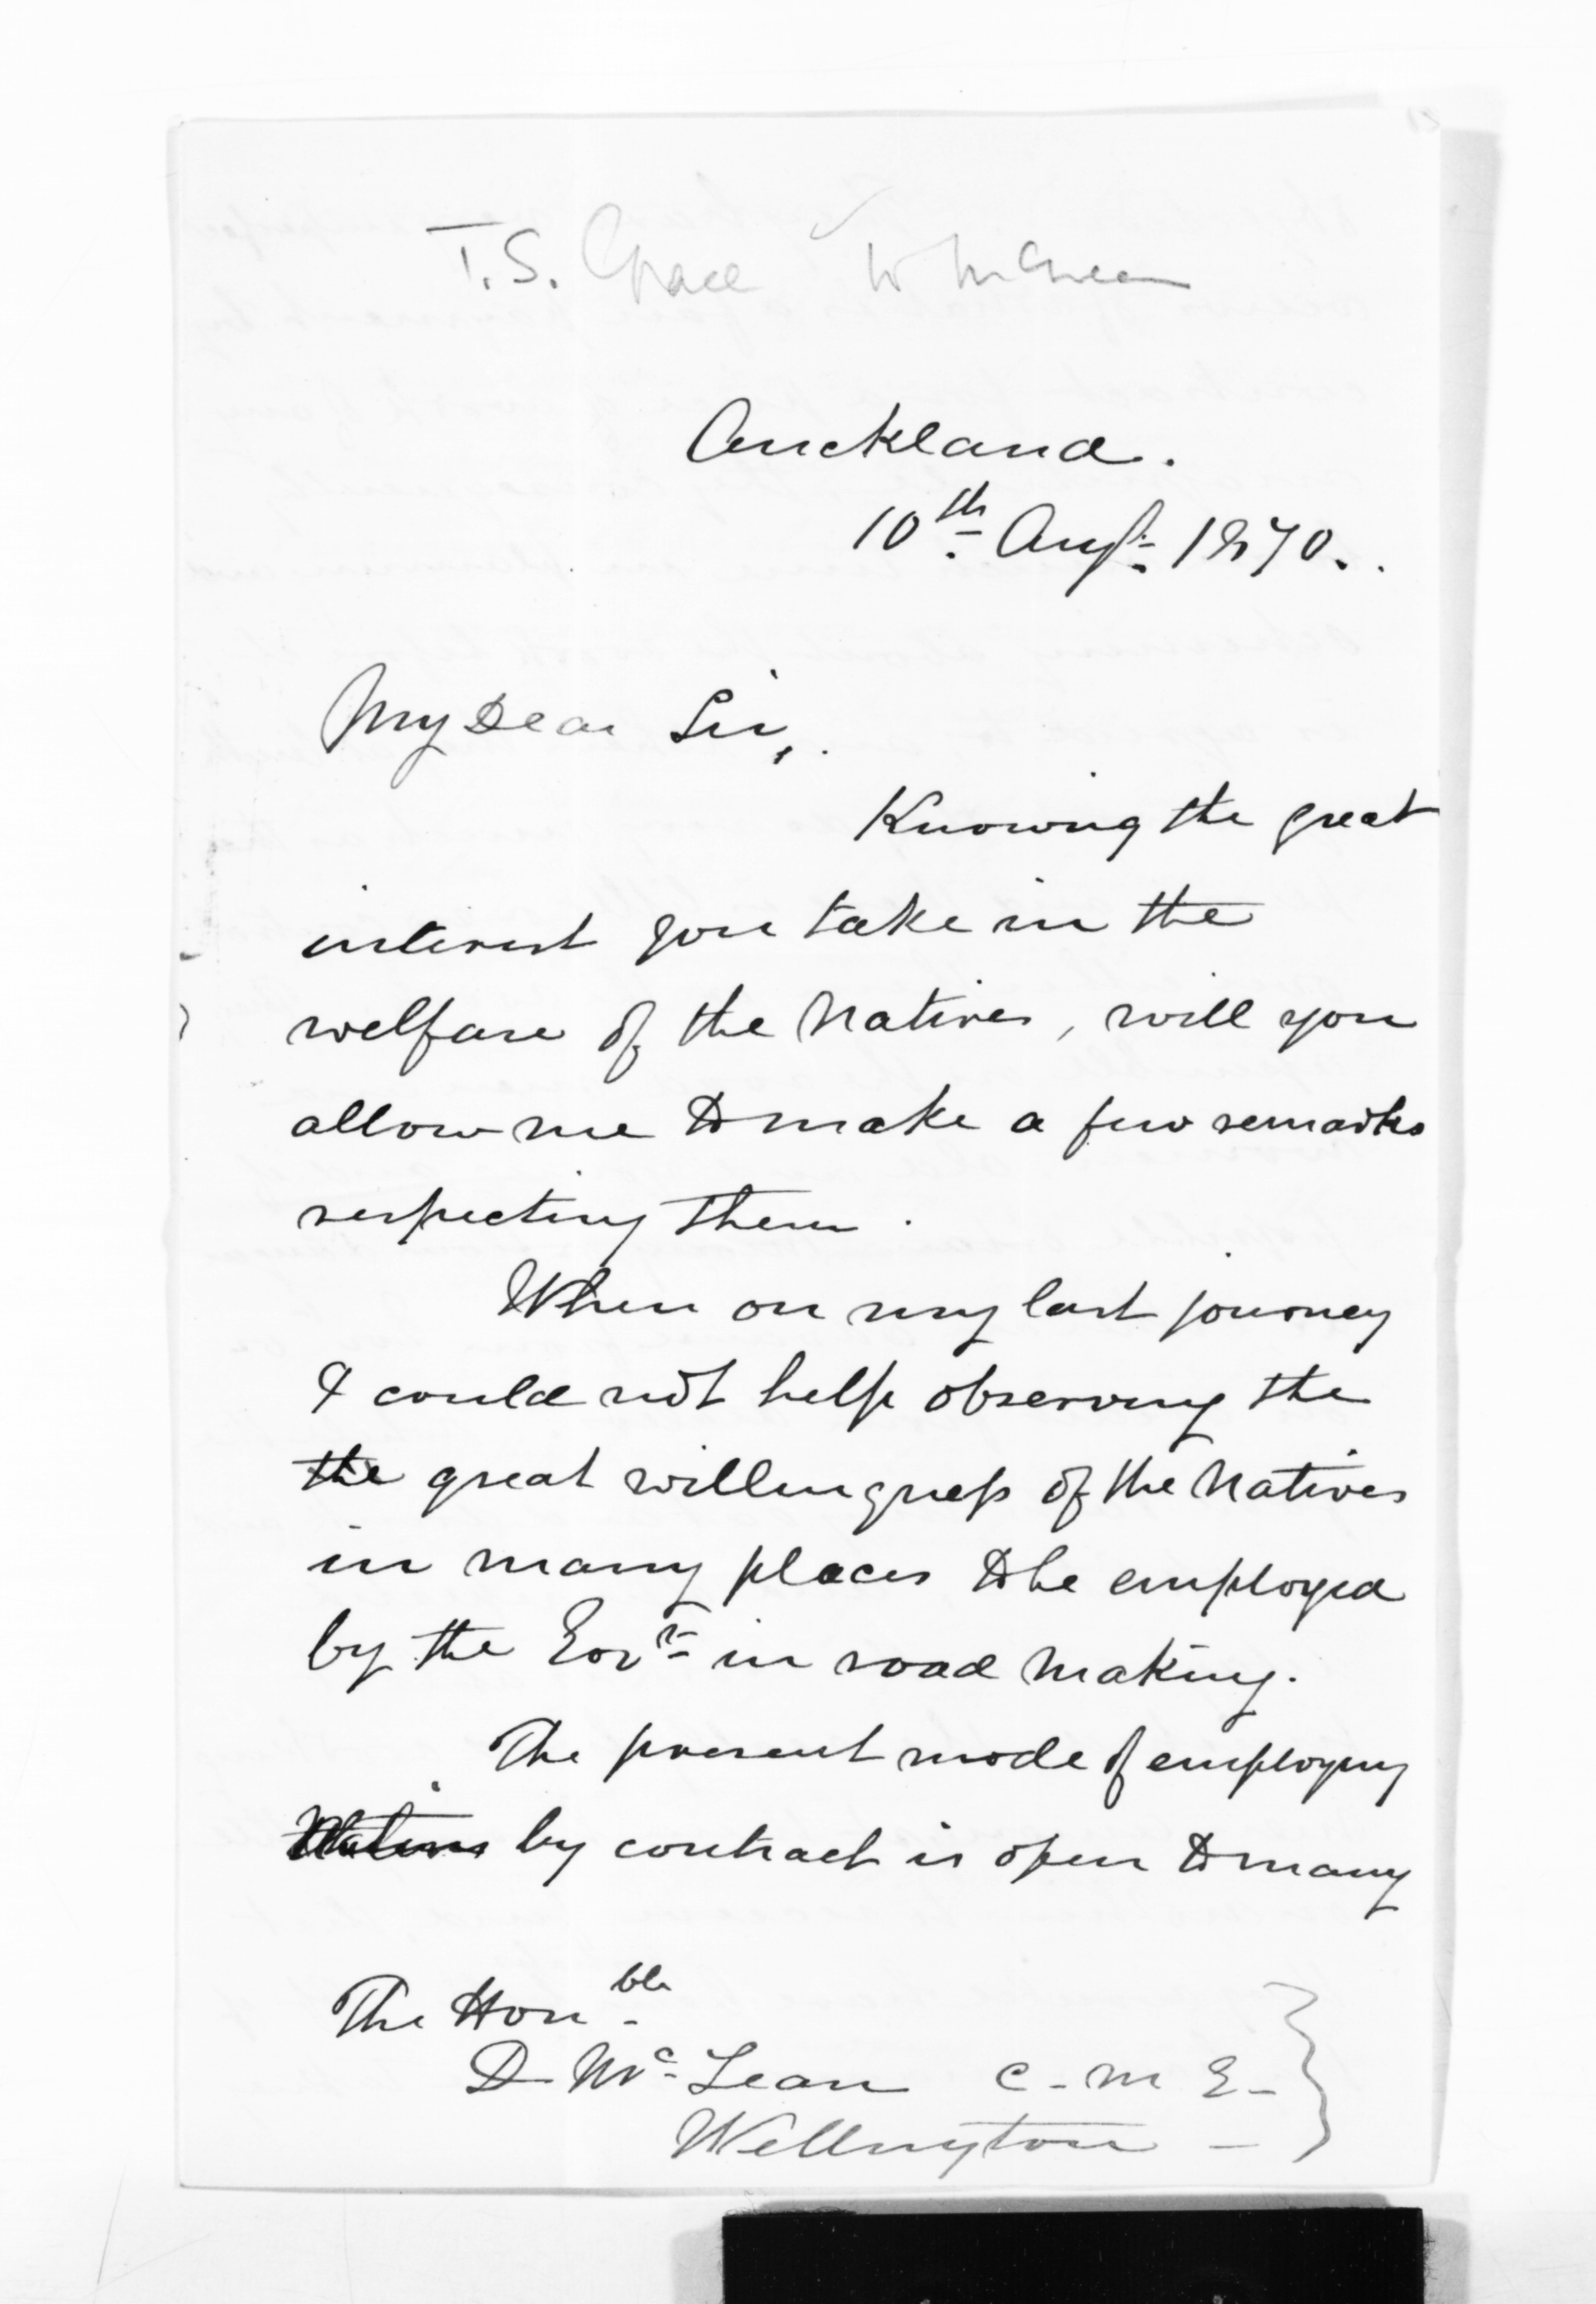 T.S. Grace to McLean
Auckland.
10th Augt. 1870.
My Dear Sir,
Knowing the great
interest you take in the
welfare of the Natives, will you
allow me to make a few remarks
respecting them.
When on my last journey
I could not help observing the
the great willingness of the Natives
in many places to be employed
by the Govr. in road making.
The present mode of employing
Natives by contract is open to many
The Honble
D McLean C.M.G.
Wellington